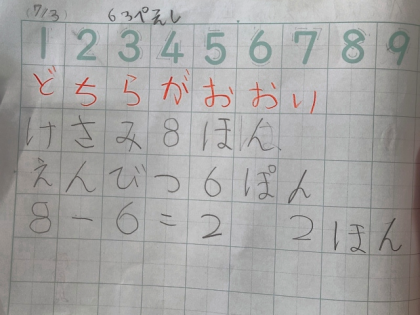 (7/3) 63ぺえじ
1 2 3 4 5 6 7 8 9
どちらがおおい
けさみ8ほん
えんぴつ6ぽん
8-6=2 2ほん